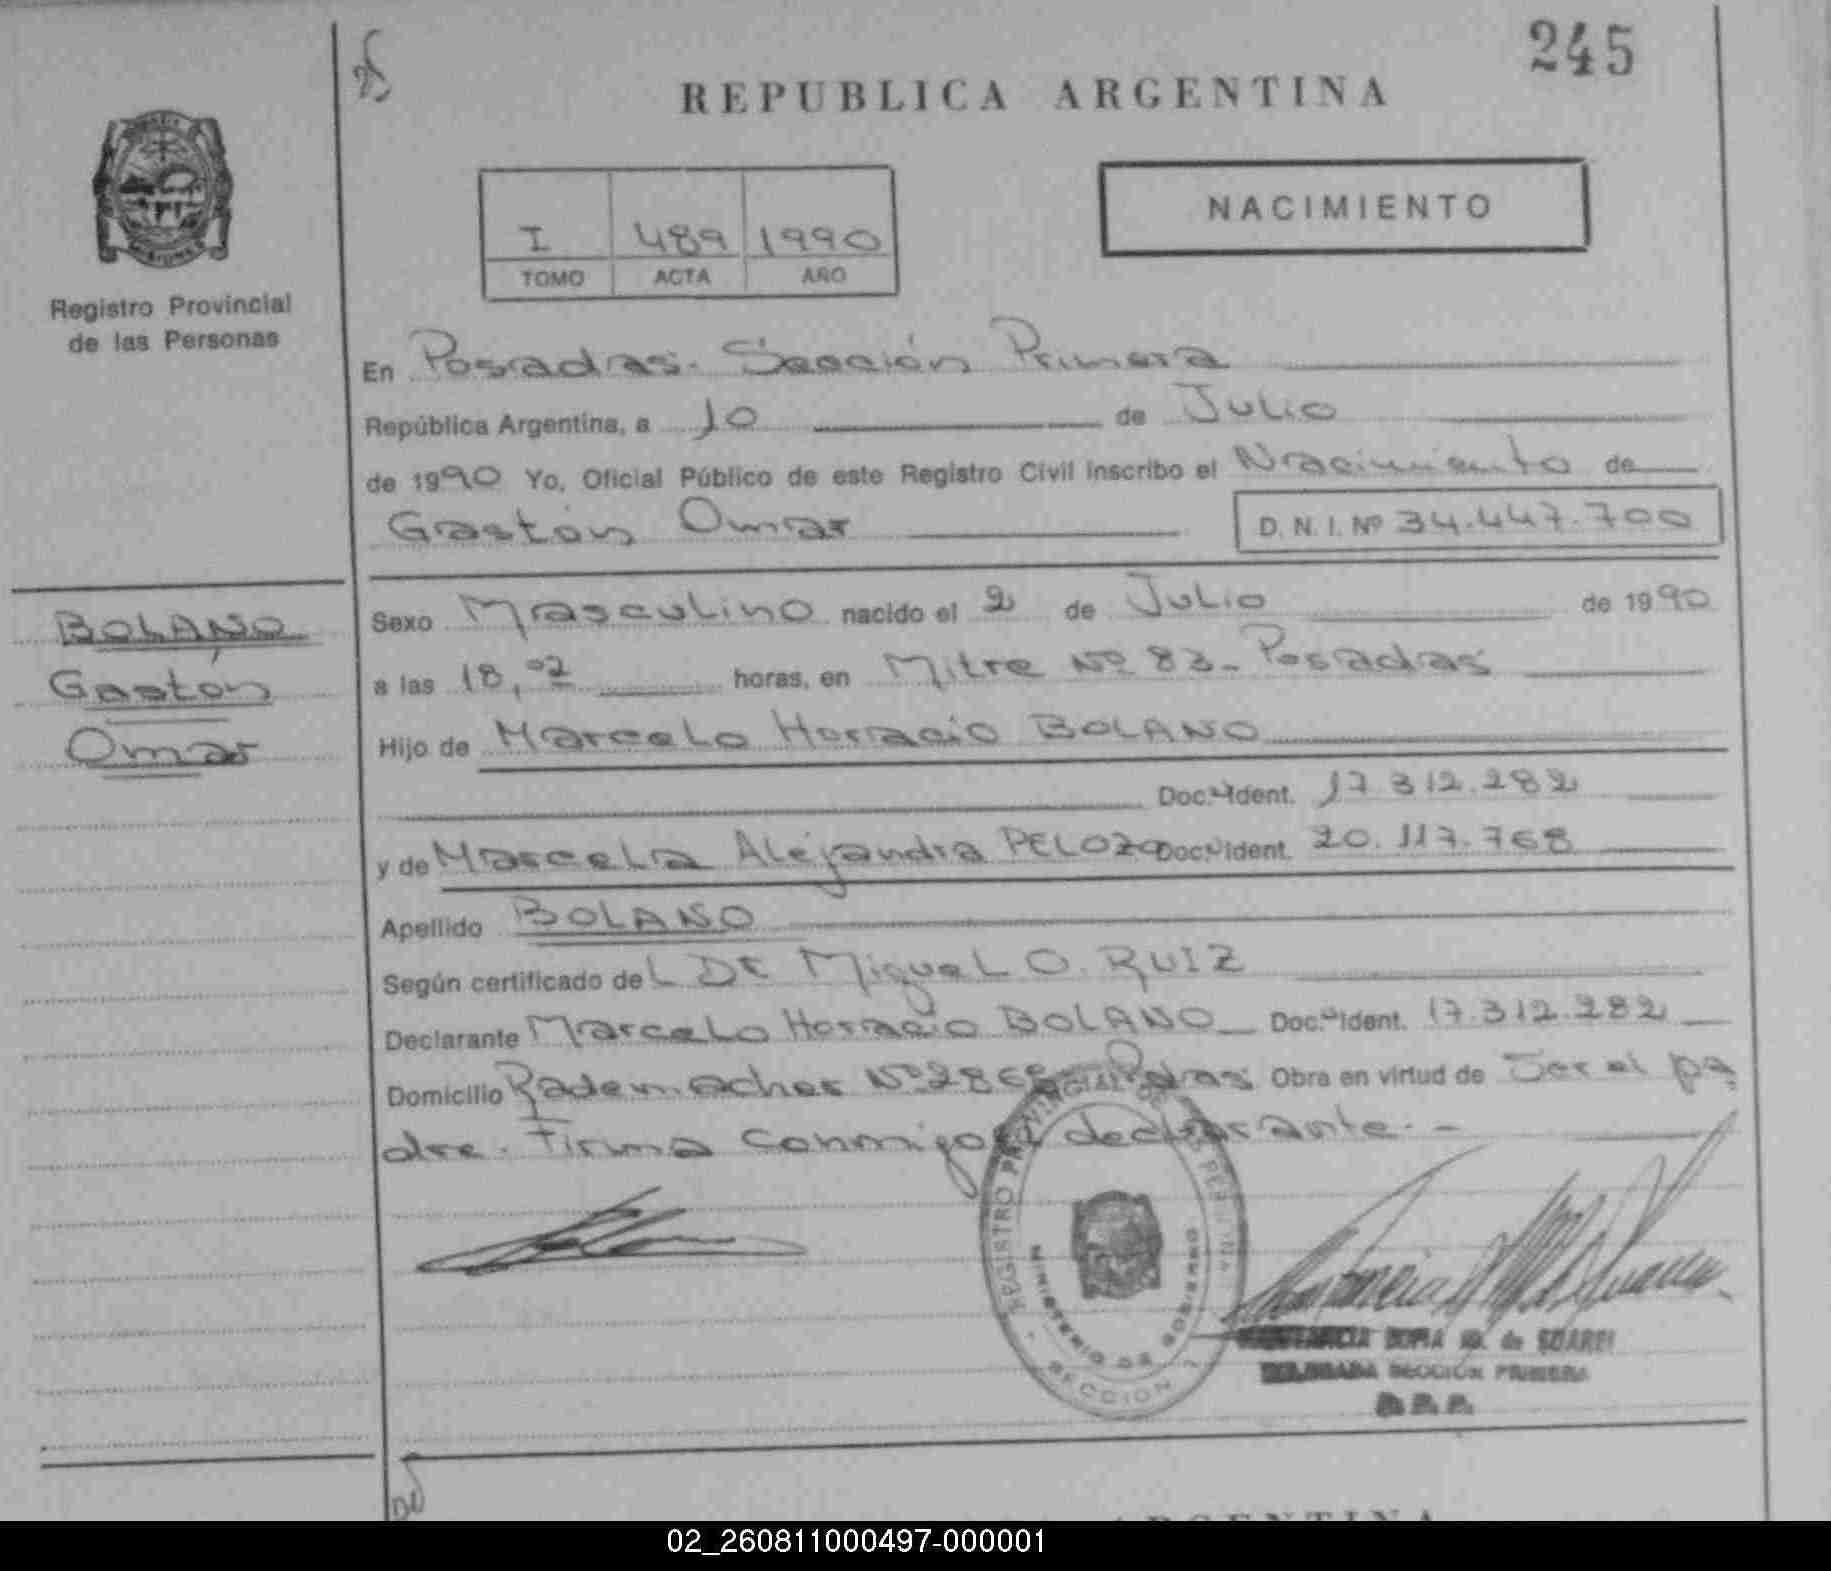 245
REPUBLICA ARGENTINA
NACIMIENTO
I 489 1990
TOMO ACTA AÑO
Registro Provincial
de las Personas
En Posadas. Sección Primera
República Argentina, a 10 de Julio
de 1990 Yo, Oficial Público de este Registro Civil inscribo el Nacimiento de
Gastón Omar D. N. I. Nº 34.447.700
BOLANO
Gastón
Omar
Sexo Masculino nacido el 2 de Julio de 1990
a las 18,02 horas, en Mitre Nº 83- Posadas
Hijo de Marcelo Horacio BOLANO
Doc. Ident. 17.312.282
y de Marcela Alejandra PELOZO Doc. Ident. 20.117.768
Apellido BOLANO
Según certificado del DE Miguel O. RUIZ
Declarante Marcelo Horacio BOLANO Doc. Ident. 17.312.282
Domicilio Rademacher Nº 286 Pdas Obra en virtud de Ser el pa
dre. Firma conmigo el declarante.-
REGISTRO PROVINCIAL DE LAS PERSONAS
MINISTERIO DE GOBIERNO
SECCION 1
SOFIA de
SECCION PRIMERA
ARGENTINA
02_260811000497-000001